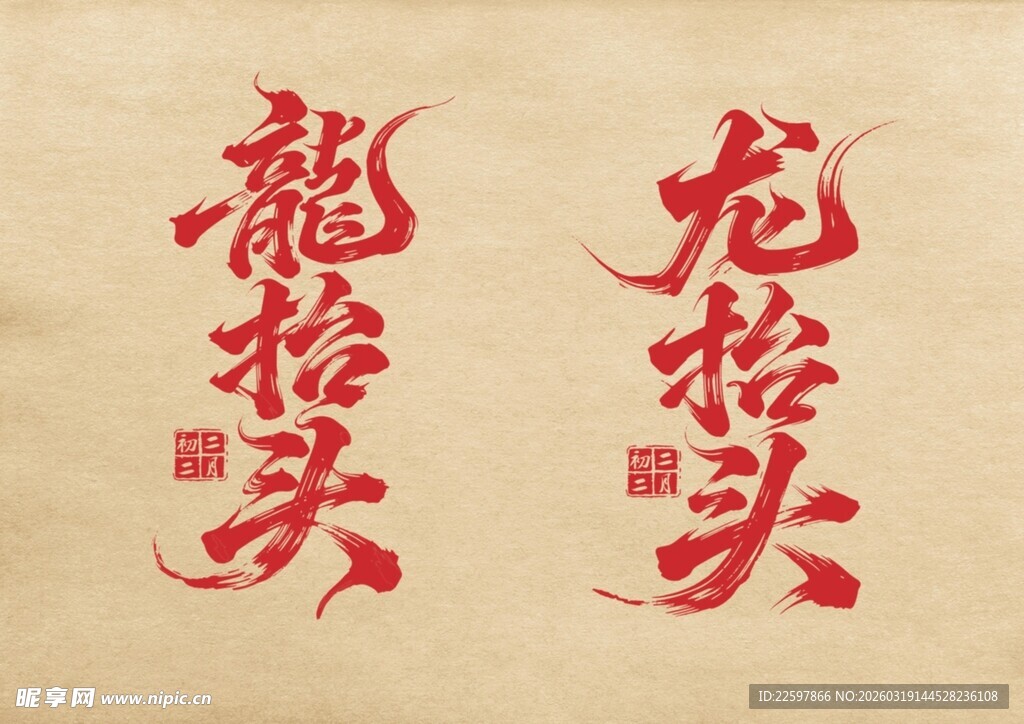 龍抬头
二月
初二
龙抬头
二月
初二
昵享网 www.nipic.cn
ID:22597866 NO:20260319144528236108